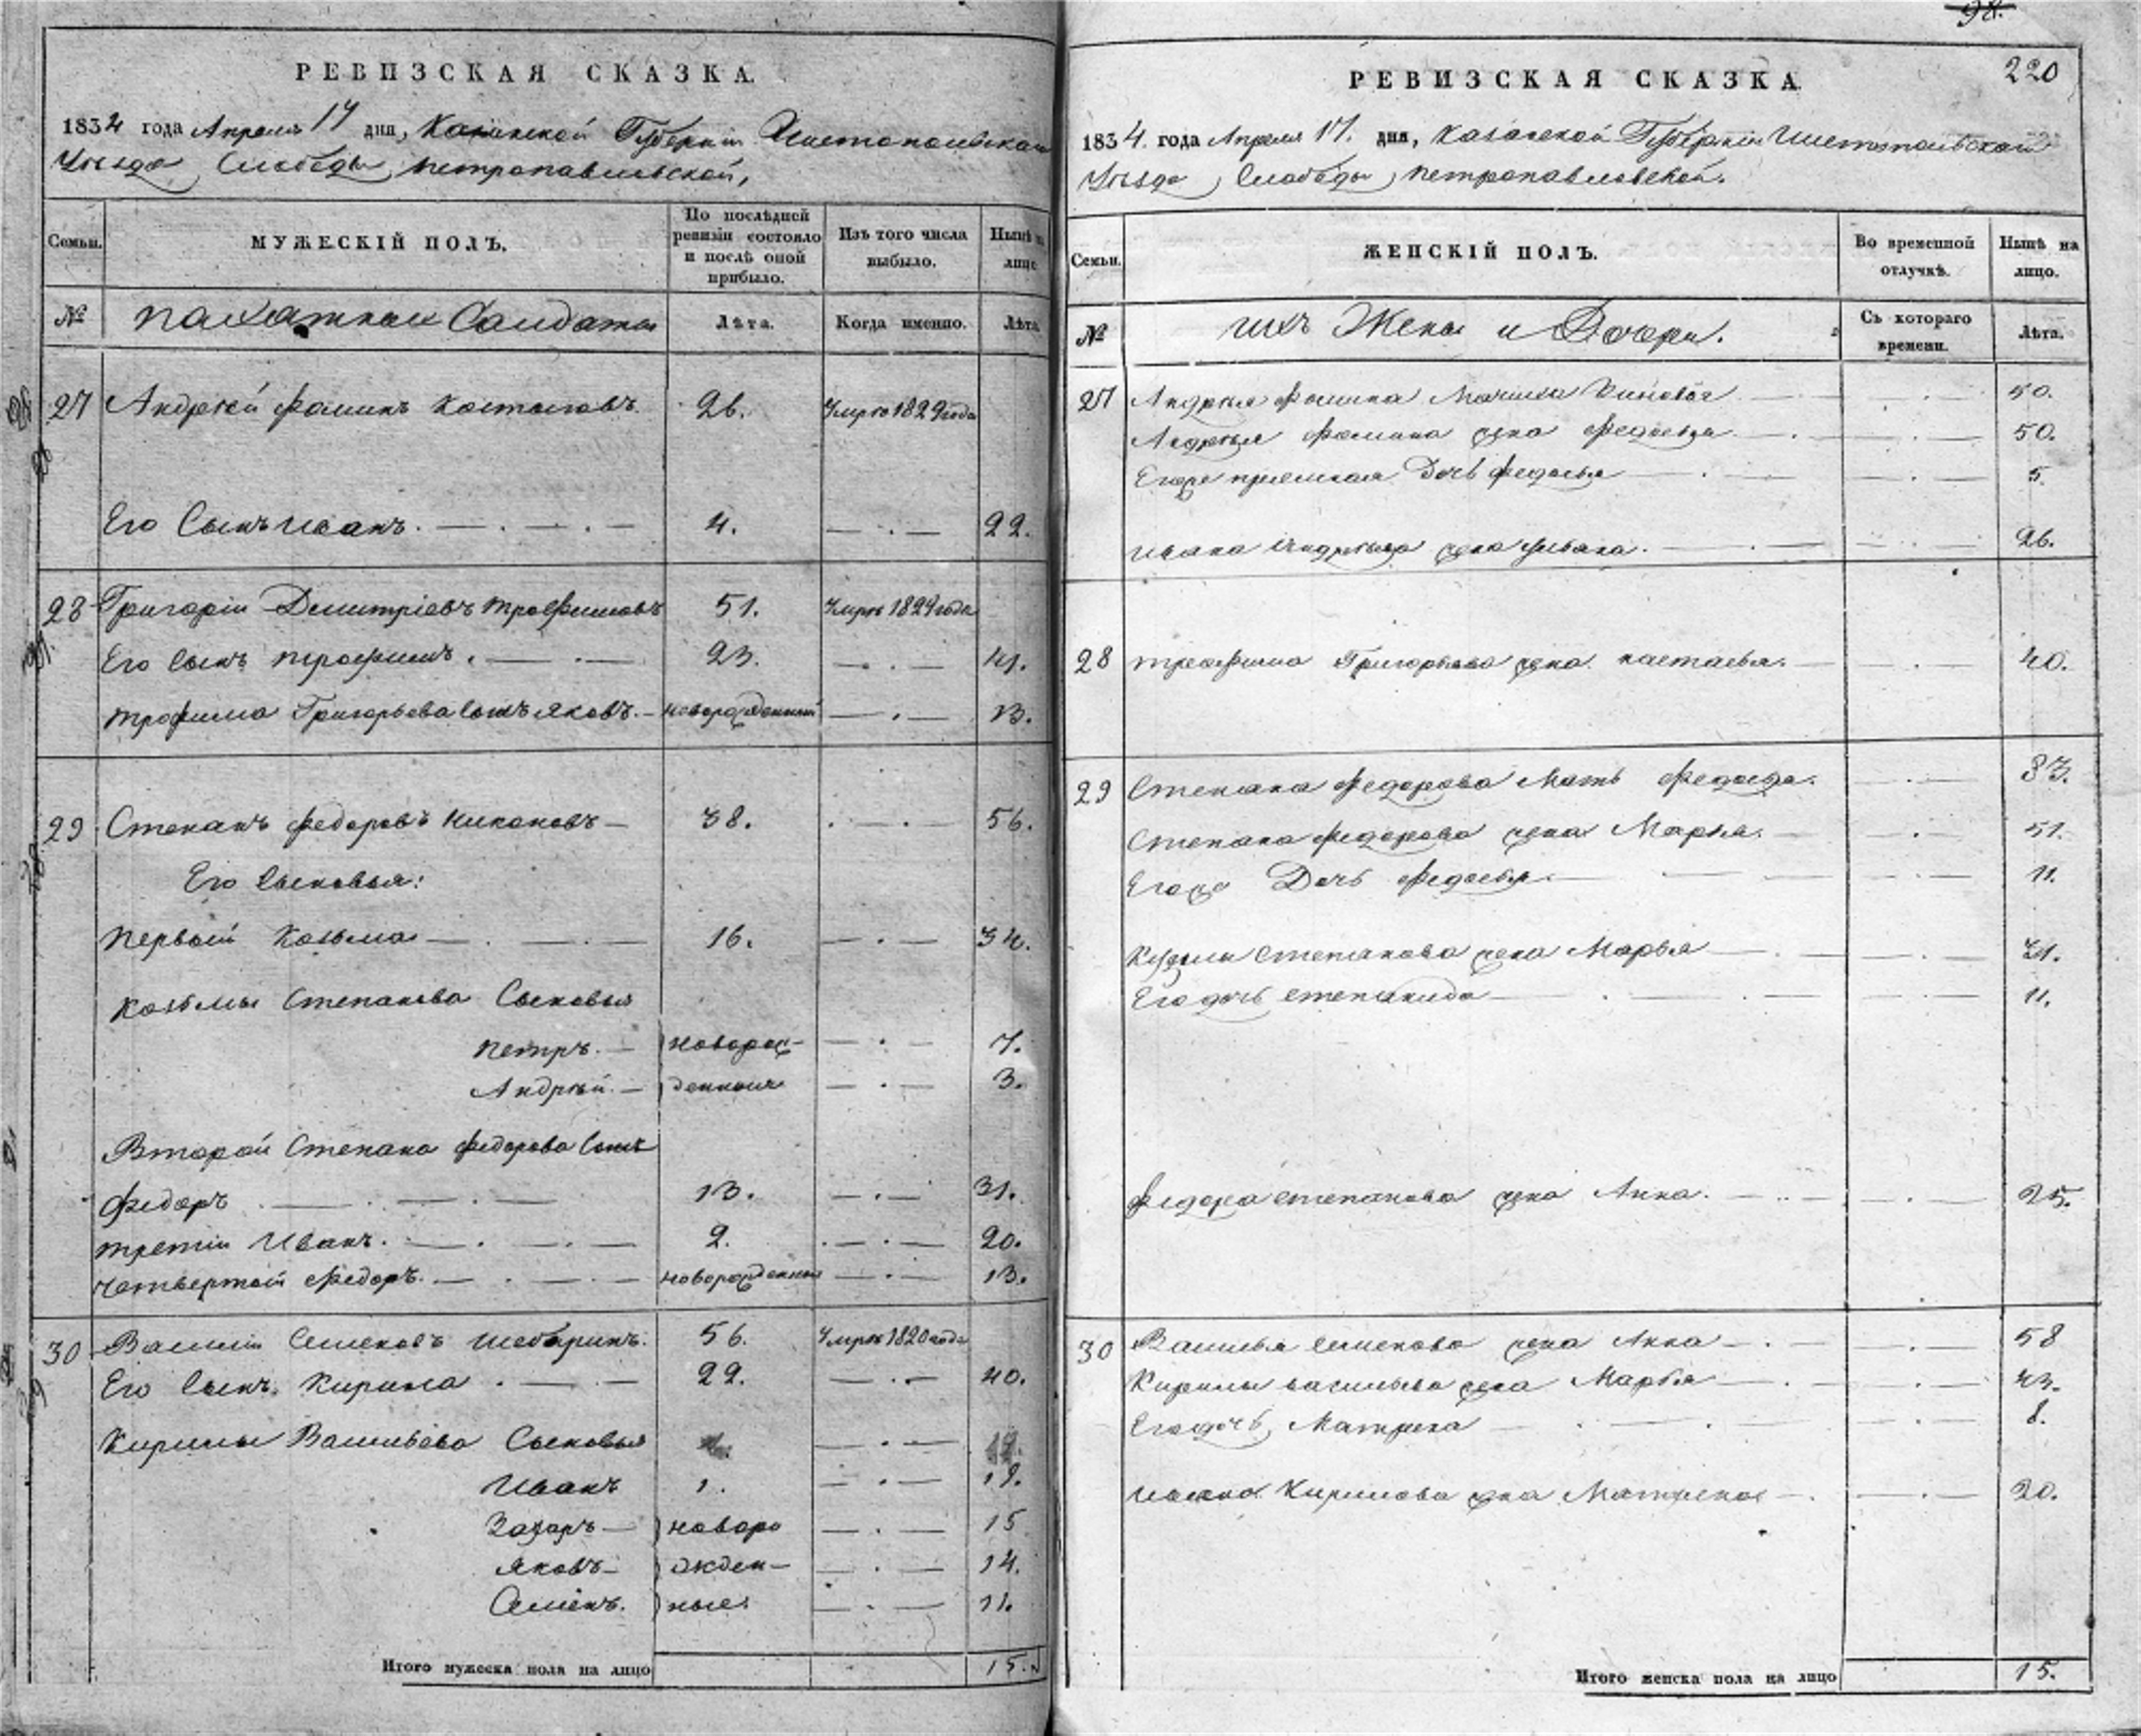 РЕВИЗСКАЯ СКАЗКА.
1834 года Апреля 17 дня, Казанской Губерніи Чистопольскаго
Уѣзда, Слободы Петропавловской,
Семьи.
МУЖЕСКІЙ ПОЛЪ.
По послѣдней ревизіи состояло и послѣ оной прибыло.
Изъ того числа выбыло.
Нынѣ на лицо
№
Пахатныи Солдаты
Лѣта.
Когда именно.
Лѣта
27 Андрей Фоминъ Костыговъ 26. Умръ 1829 года
Его Сынъ Иванъ. 4. 22.
28 Григорій Дмитріевъ Трофимовъ 51. Умръ 1829 года
Его сынъ Трофимъ. 23. 41.
Трофима Григорьева сынъ Яковъ. новорожденный 13.
29 Степанъ Федоровъ Никоновъ 38. 56.
Его Сыновья:
Первый Козьма 16. 34.
Козьмы Степанова Сыновья
Петръ. новорож- 7.
Андрей. денные 3.
Второй Степана Федорова Сынъ
Федоръ 13. 31.
Третій Иванъ. 2. 20.
Четвертой Федоръ. новорожденной 13.
30 Василій Семеновъ Шебаринъ. 56. Умръ 1820 года
Его Сынъ Кирила 22. 40.
Кирилы Васильева Сыновья
Иванъ 1. 19.
Захаръ новоро 15
Яковъ жден- 14.
Семенъ. ные 11.
Итого мужеска пола на лицо 15.
98.
220
РЕВИЗСКАЯ СКАЗКА
1834. года Апреля 17. дня, Казанской Губерніи Чистопольскаго
Уѣзда, Слободы Петропавловской.
Семьи.
ЖЕНСКІЙ ПОЛЪ.
Во временной отлучкѣ.
Нынѣ на лицо.
№
ихъ Жены и Дочери.
Съ котораго времени.
Лѣта.
27 Андрея Фомина Мачиха 50.
Андрея Фомина жена Федосья 50.
Егоже приемная Дочь Федосья 5.
Ивана Андреева жена 26.
28 Трофима Григорьева жена Настасья. 40.
29 Степана Федорова Мать 83.
Степана Федорова жена Марья. 51.
Егоже Дочь Федосья. 11.
Кузьмы Степанова жена Марья 31.
Его дочь Степанида 11.
Федора Степанова жена Анна. 25.
30 Василья Семенова жена Анна 58
Кирилы Васильева жена Марья 43.
Его дочь Матрена 8.
Ивана Кирилова жена Матрена 20.
Итого женска пола на лицо 15.